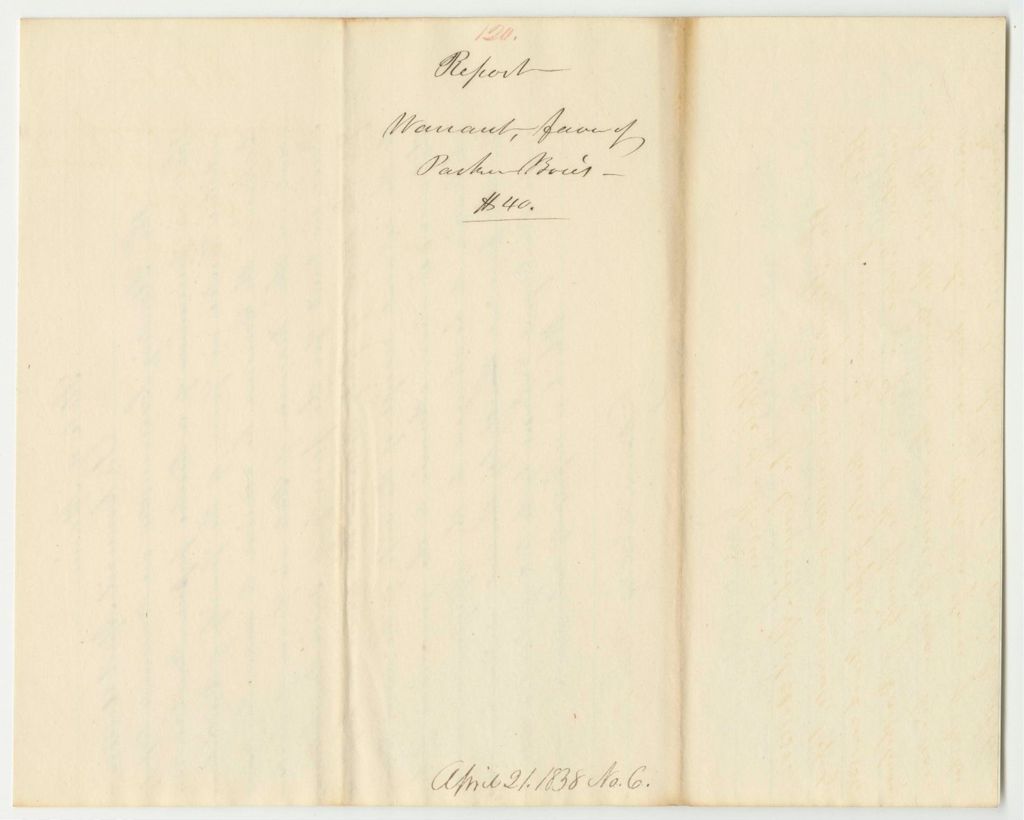 120.
Report
Warrant, favor of
Parker
$40.
April 21. 1838 No. 6.